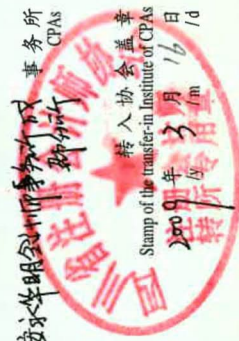 安永华明会计师事务所成
都分所
事务所
CPAs
转入协会盖章
Stamp of the transfer-in Institute of CPAs
2009年3月16日
/y /m /d
省注册会计师协
转所专用章